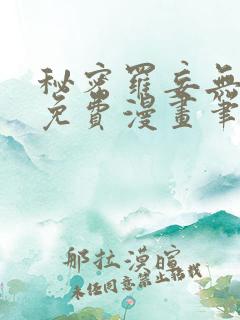 秘密羅妄無
免費漫畫筆
那拉漠暄
未经同意禁止转载